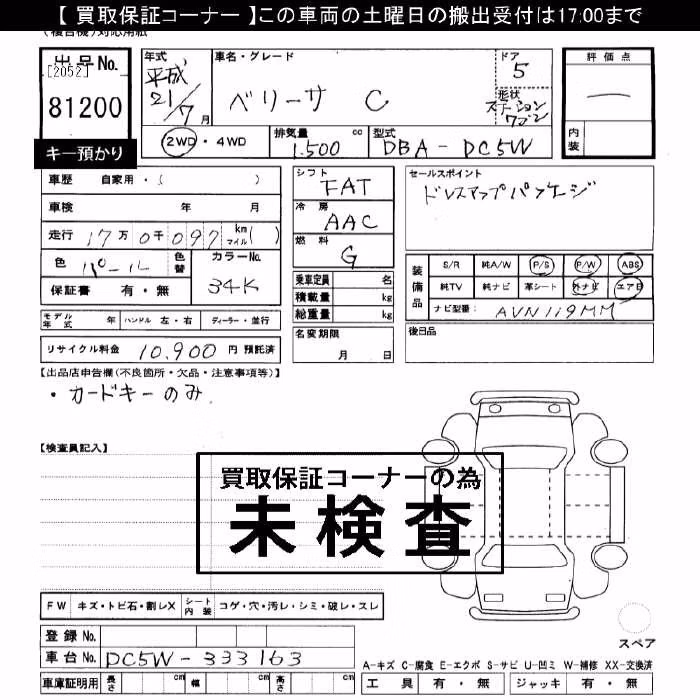 【 買取保証コーナー 】この車両の土曜日の搬出受付は17:00まで
出品No.
[2052]
81200
キー預かり
年式
平成
21/7月
車名・グレード
ベリーサ C
ドア
5
形状
ステーション
ワゴン
評価点
—
内装
2WD・4WD
排気量 1.500 cc
型式 DBA-DC5W
車歴 自家用・( )
車検 年 月
走行 17万0千097 km マイル( )
色 パール
色替
カラーNo. 34K
保証書 有・無
モデル年式 年
ハンドル 左・右
ディーラー・並行
リサイクル料金 10,900 円 預託済
シフト FAT
冷房 AAC
燃料 G
乗車定員 名
積載量 kg
総重量 kg
名変期限
月 日
セールスポイント
ドレスアップパッケージ
装備品
S/R 純A/W P/S P/W ABS
純TV 純ナビ 革シート 外ナビ エアB
ナビ型番: AVN119MM
後日品
【出品店申告欄(不良箇所・欠品・注意事項等)】
・カードキーのみ
【検査員記入】
買取保証コーナーの為
未検査
FW キズ・トビ石・割レX シート内装 コゲ・穴・汚レ・シミ・破レ・スレ
登録No.
車台No. DC5W-333163
車庫証明用 長さ cm 幅 cm 高さ cm
スペア
A-キズ C-腐食 E-エクボ S-サビ U-凹ミ W-補修 XX-交換済
工具 有・無 ジャッキ 有・無